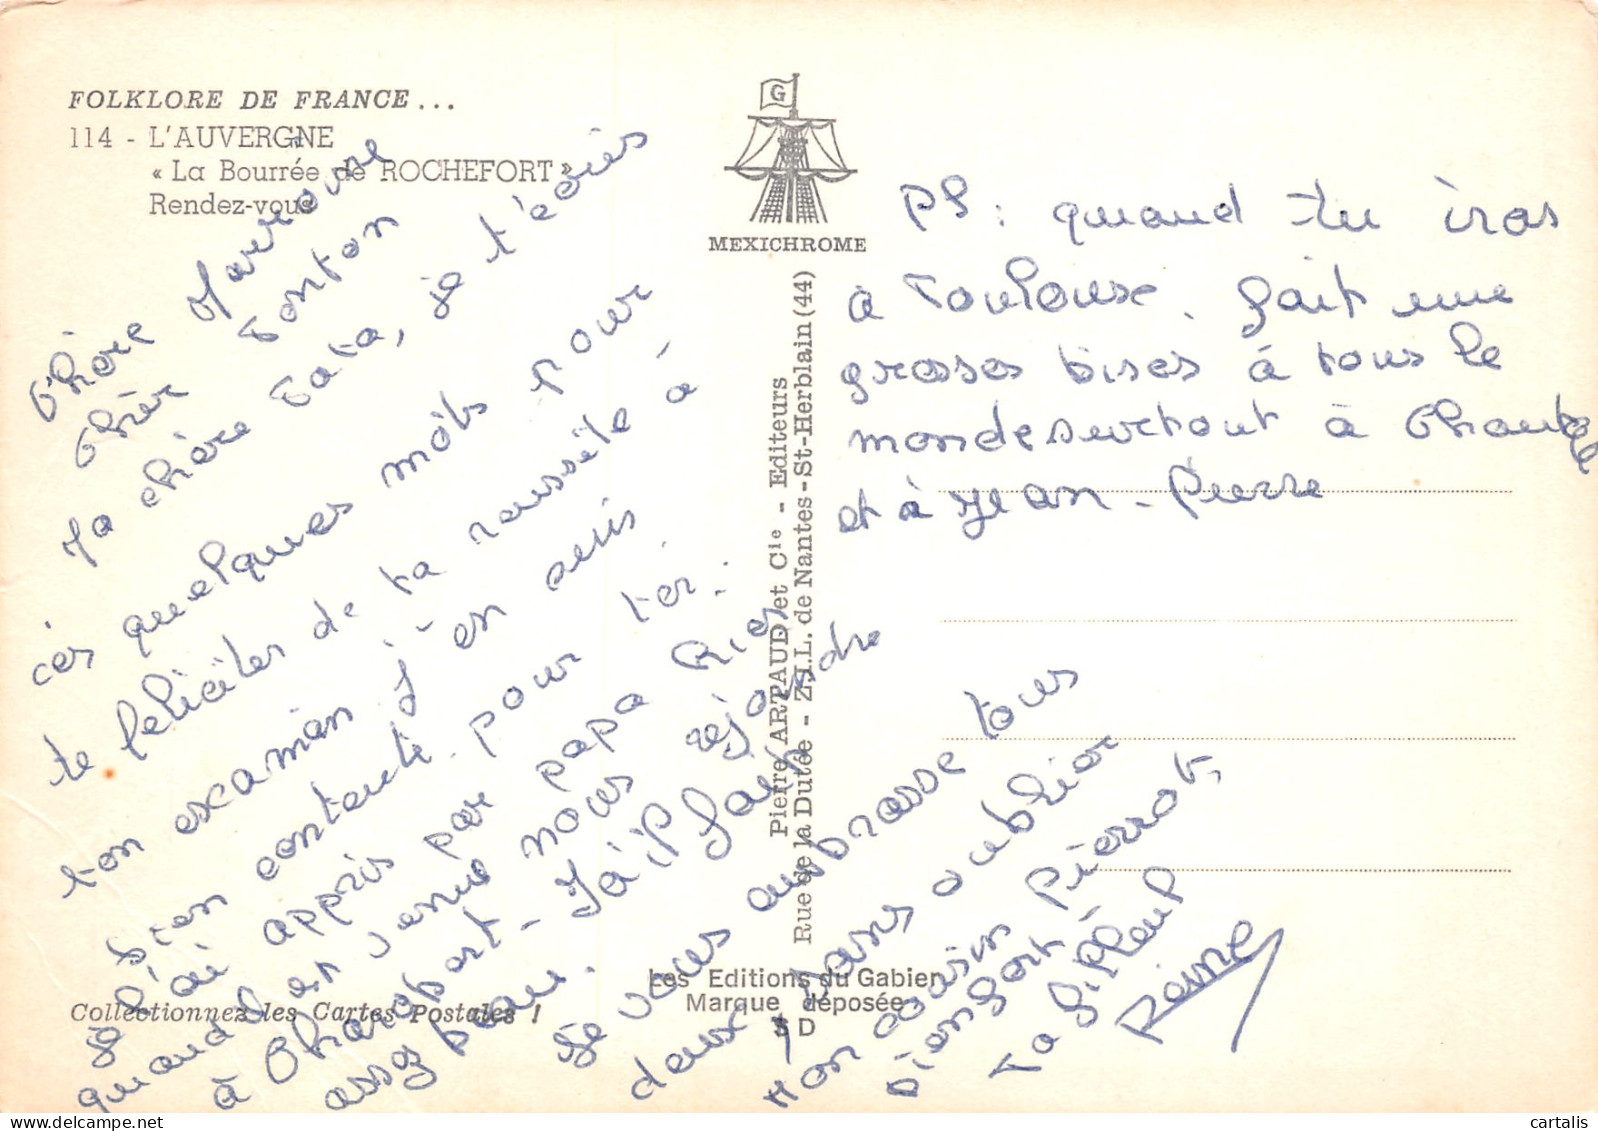 FOLKLORE DE FRANCE...
114 - L'AUVERGNE
« La Bourrée de ROCHEFORT »
Rendez-vous
G
MEXICHROME
Chère Marraine
Cher Tonton
Ma chère Tata, je t'écris
ces quelques môts pour
te féliciter de ta réussite à
ton examian j'en suis
bien contente pour toi.
je l'ai appris par papa
quand est venu nous rejoindre
à Charobart - Il fait
assez beau.
Je vous ambrasse tous
deux sans oublier
mon cousin Pierrot,
bien fort,
Ta filleul
Reine
PS: quand tu iras
à Toulouse. fait une
grosses bises à tous le
monde surtout à Chantal
et à Jean-Pierre
Pierre ARTAUD et Cie - Editeurs
Rue de la Dutée - Z.I.L. de Nantes-St-Herblain (44)
Les Editions du Gabier
Marque déposée
S D
Collectionnez les Cartes Postales !
cartalis